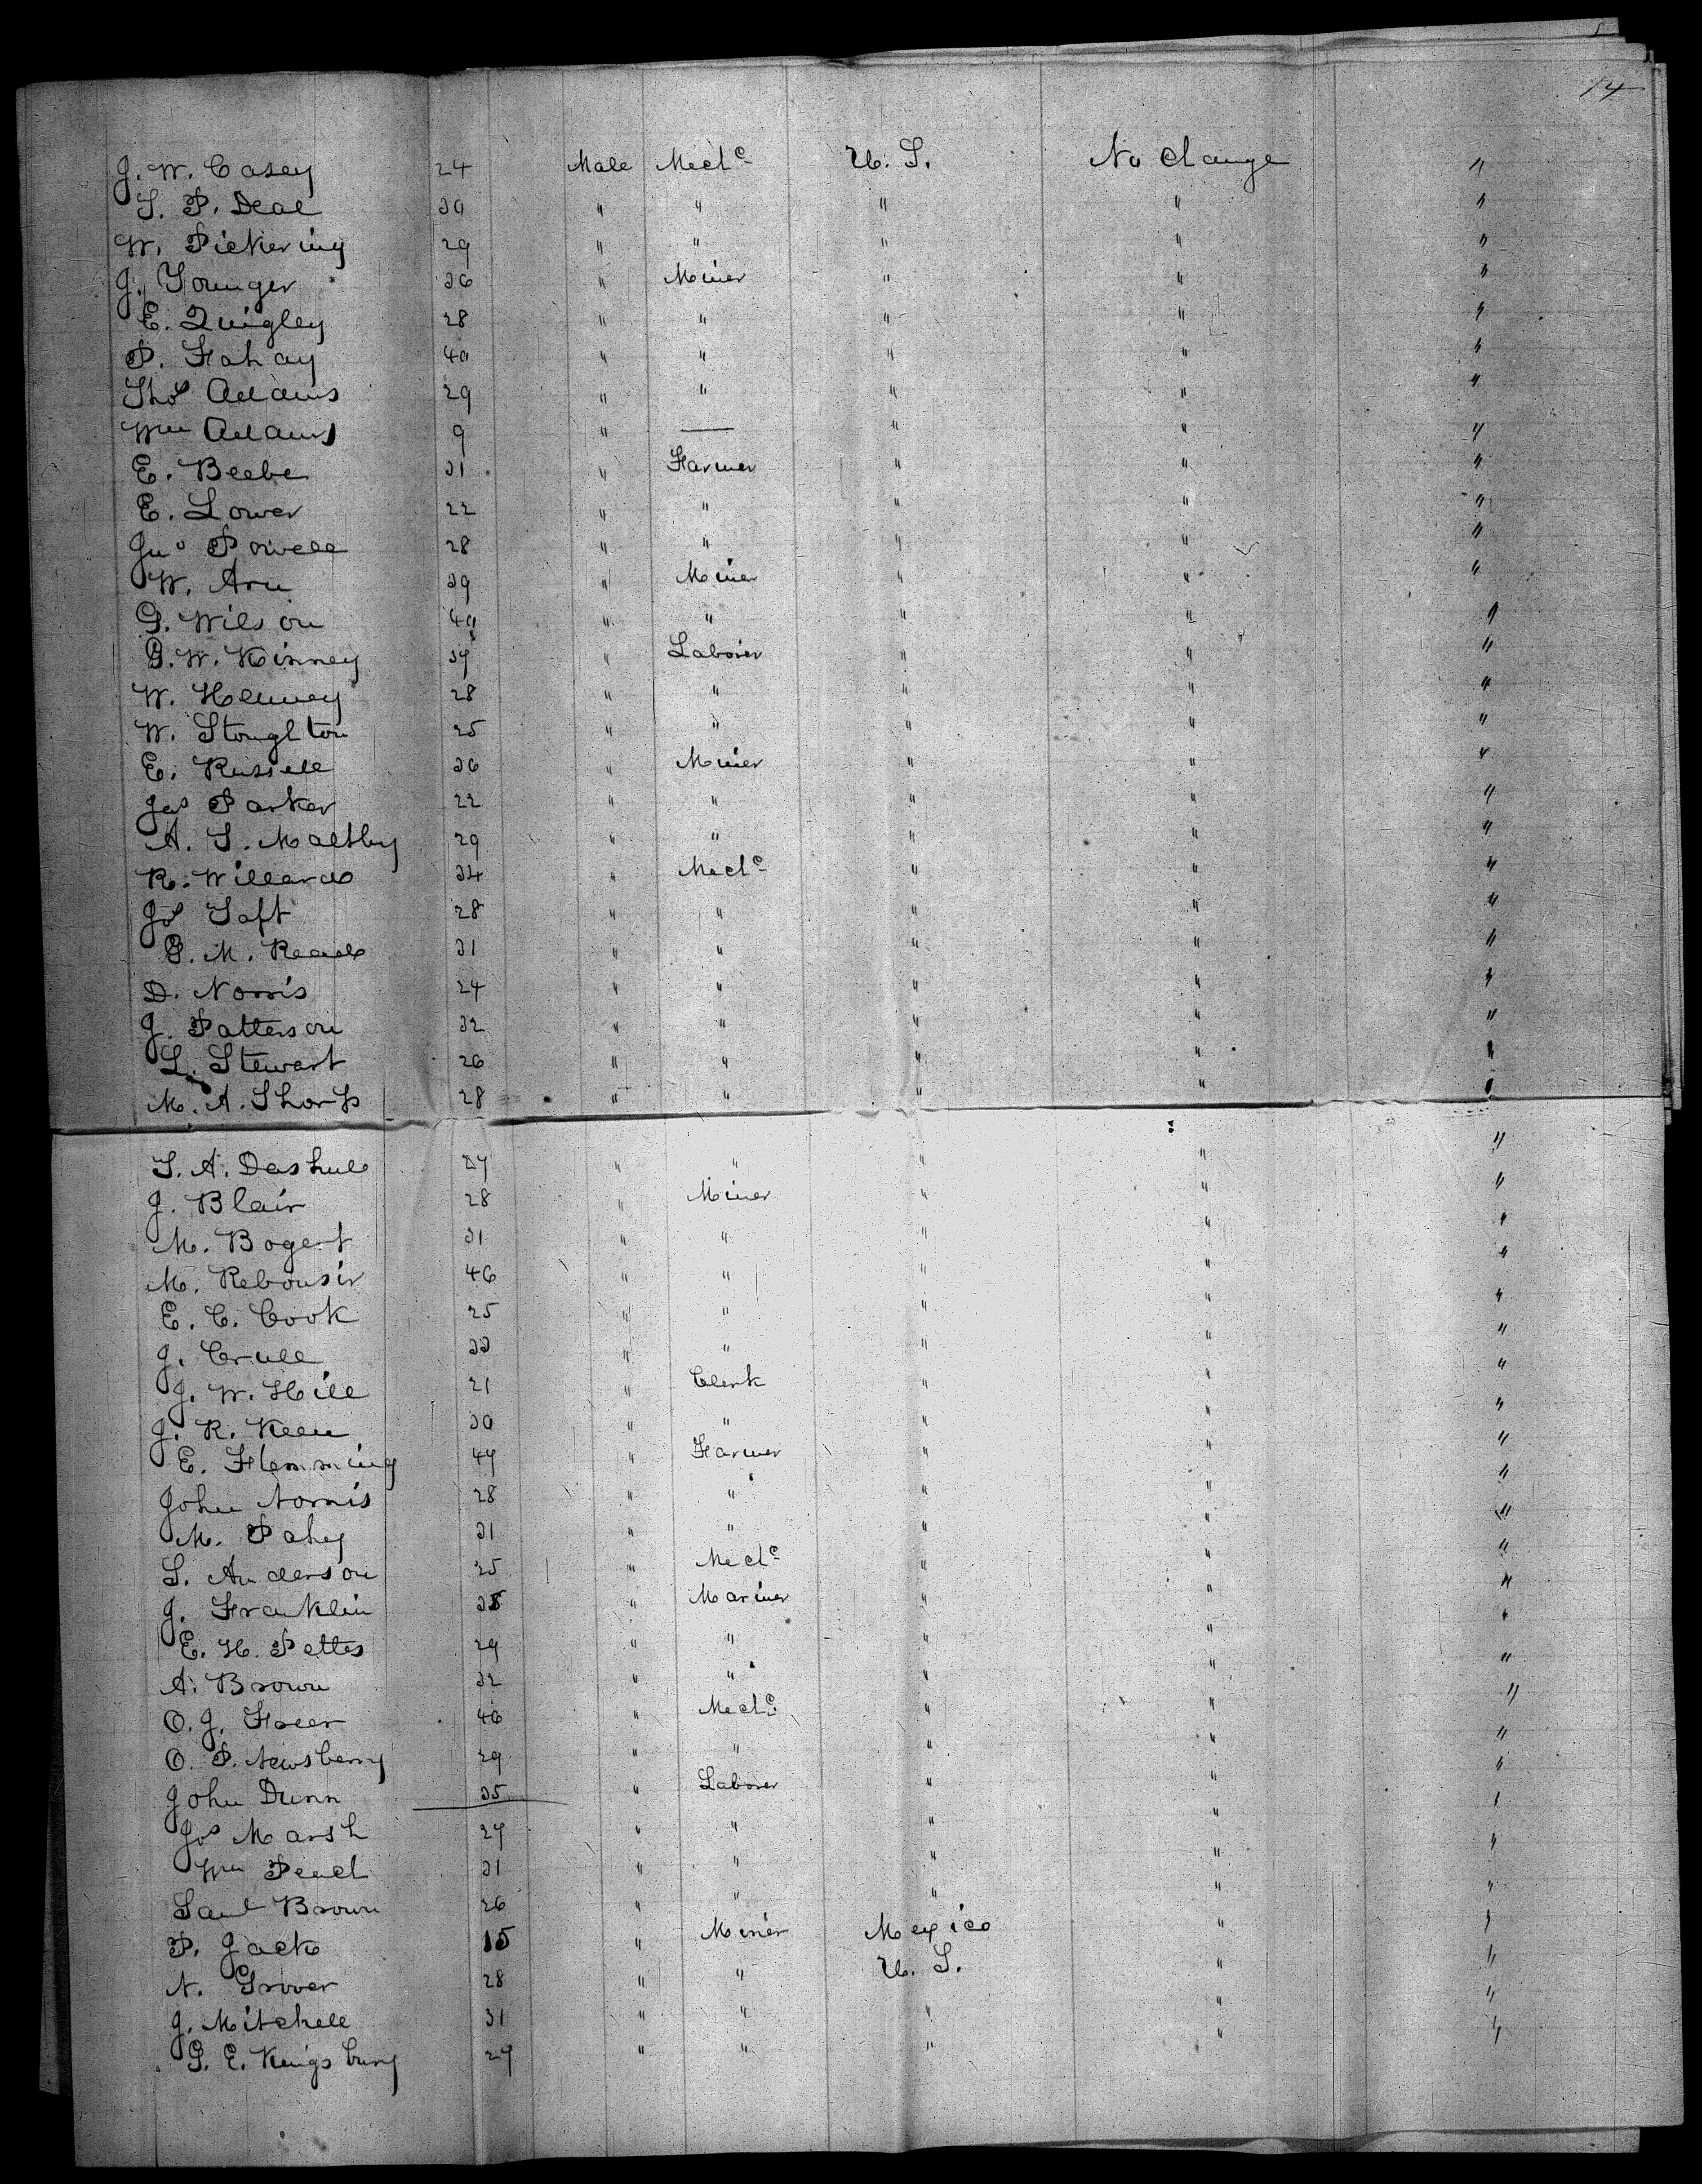 14
J. W. Casey 24 Male Mech^c U. S. No Change "
S. P. Deal 30 " " " " "
W. Pickering 29 " " " " "
J. Younger 36 " Miner " " "
E. Quigley 28 " " " " "
P. Fahay 40 " " " " "
Tho^s Adams 29 " " " " "
Wm Adams 9 " — " " "
E. Beebe 31 " Farmer " " "
E. Lower 22 " " " " "
Jn^o Powell 28 " " " " "
W. Arn 39 " Miner " " "
G. Wilson 40 " " " " "
G. W. Kinney 37 " Laborer " " "
W. 28 " " " " "
W. Stoughton 25 " " " " "
E. Russell 36 " Miner " " "
Jas Parker 22 " " " " "
A. S. Maltby 29 " " " " "
R. Willard 34 " Mech^c " " "
Jos Taft 28 " " " " "
G. M. Read 31 " " " " "
D. Norris 24 " " " " "
J. Patterson 32 " " " " "
L. Stewart 26 " " " " "
M. A. Thorp 28 " " " " "
S. A. 27 " " " " "
J. Blair 28 " Miner " " "
M. Bogert 31 " " " " "
M. Rebousir 46 " " " " "
E. C. Cook 25 " " " " "
J. Crull 33 " " " " "
J. W. Hill 21 " Clerk " " "
J. R. Keen 30 " " " " "
E. Flemming 47 " Farmer " " "
John Norris 28 " " " " "
M. Pahy 31 " " " " "
S. Anderson 25 " Mech^c " " "
J. Franklin 35 " Mariner " " "
E. H. Pettes 29 " " " " "
A. Brown 32 " " " " "
O. J. 46 " Mech^c " " "
O. P. Newsberry 29 " " " " "
John Dunn 35 " Laborer " " "
Jos Marsh 27 " " " " "
Wm Peach 31 " " " " "
Saml Brown 26 " " " " "
P. Jack 15 " Miner Mexico " "
N. Grover 28 " " U. S. " "
J. Mitchell 31 " " " " "
G. E. Kingsbury 27 " " " " "